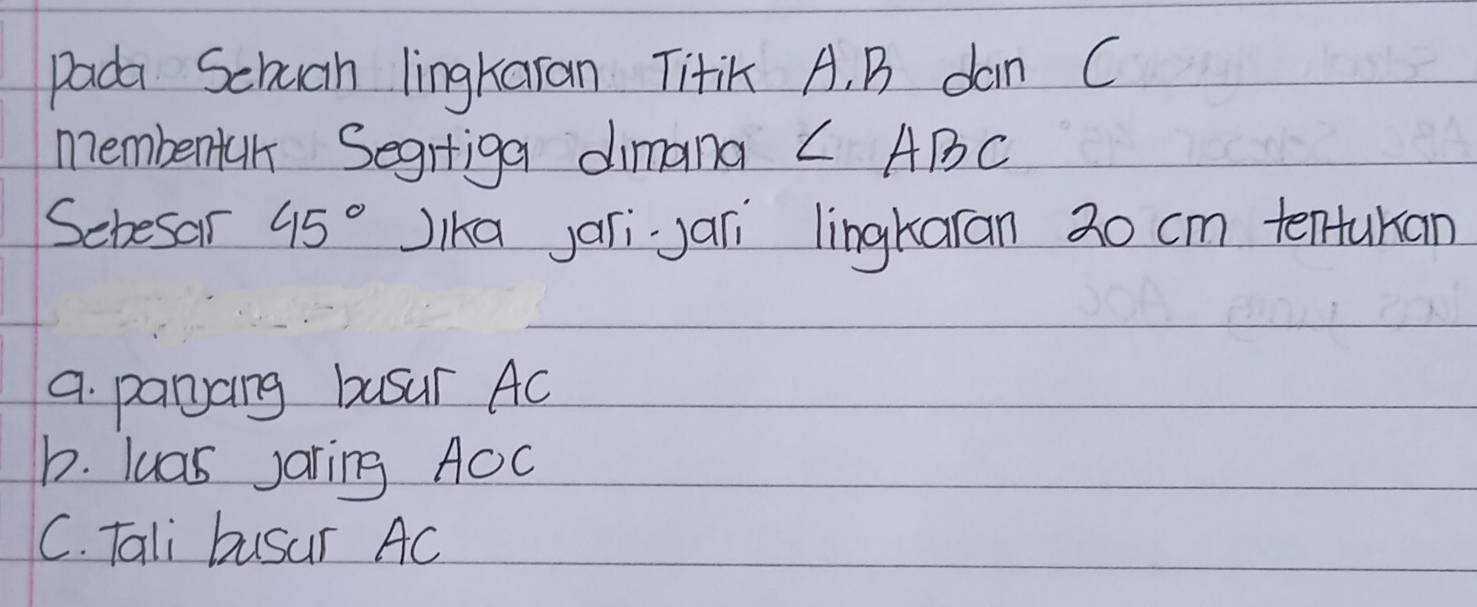 pada Sebuah lingkaran Titik A.B dan C
membentuk Segitiga dimana < ABC
Sebesar 45° Jika jari-jari lingkaran 20 cm tentukan
a. panjang busur AC
b. luas jaring AOC
C. Tali busur AC